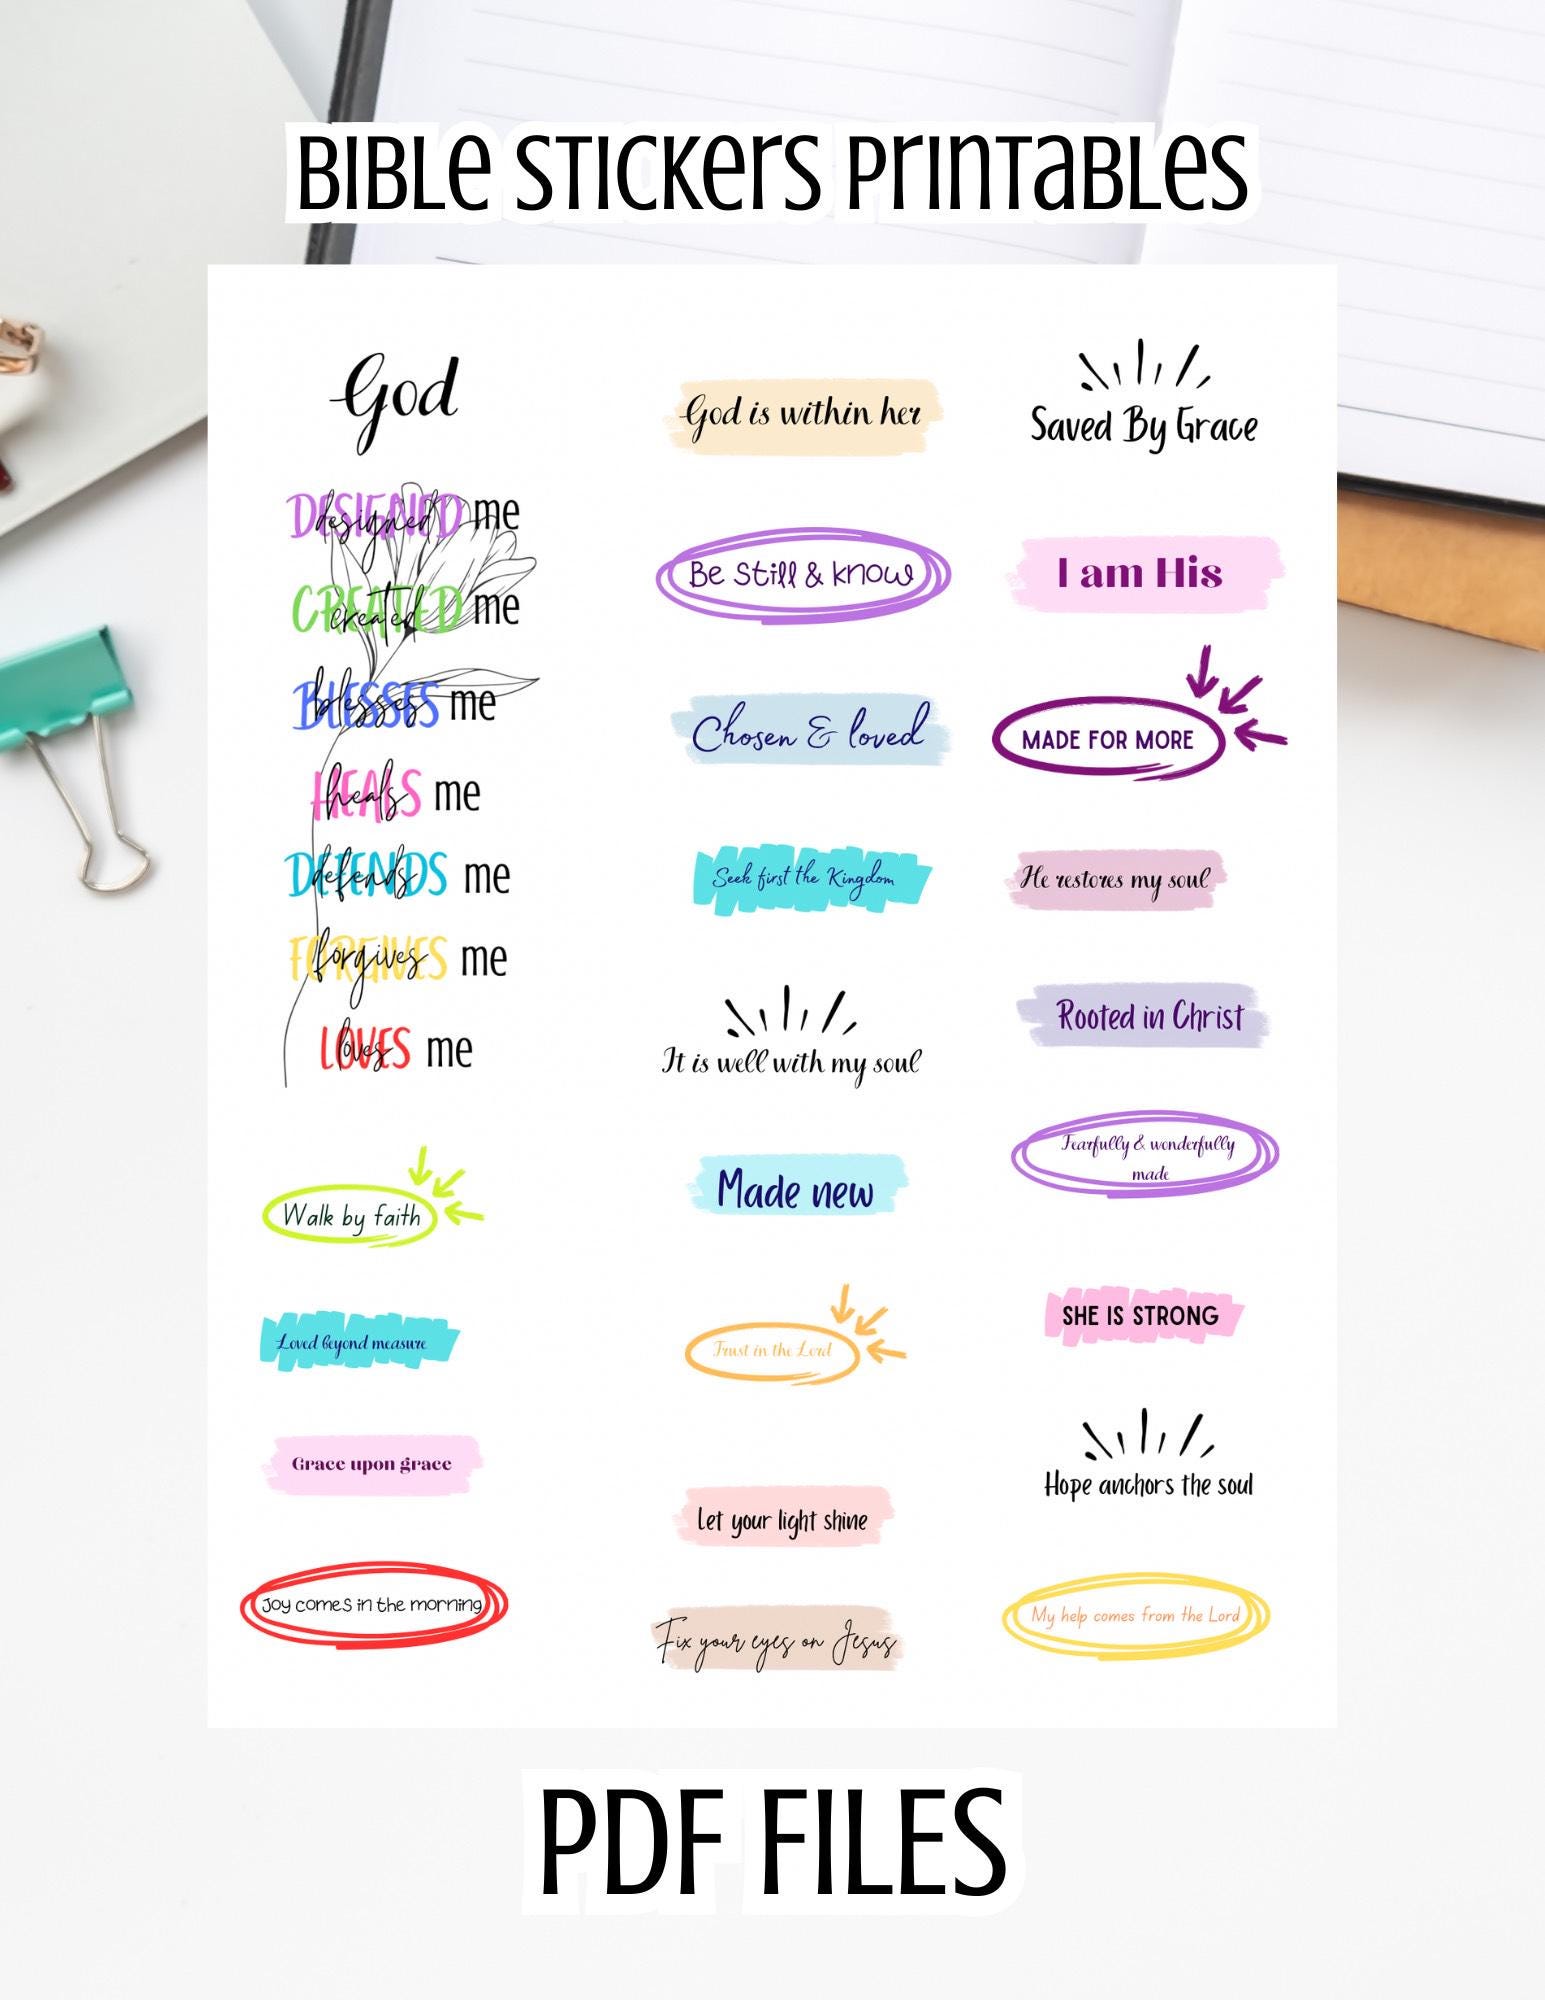 BIBLe STICKers PrINTaBLes
God
DESIGNED designed me
CREATED created me
BLESSES blesses me
HEALS heals me
DEFENDS defends me
FORGIVES forgives me
LOVES loves me
Walk by faith
Loved beyond measure
Grace upon grace
Joy comes in the morning
God is within her
Be still & know
Chosen & loved
Seek first the Kingdom
It is well with my soul
Made new
Trust in the Lord
Let your light shine
Fix your eyes on Jesus
Saved By Grace
I am His
MADE FOR MORE
He restores my soul
Rooted in Christ
Fearfully & wonderfully
made
SHE IS STRONG
Hope anchors the soul
My help comes from the Lord
PDF FILES